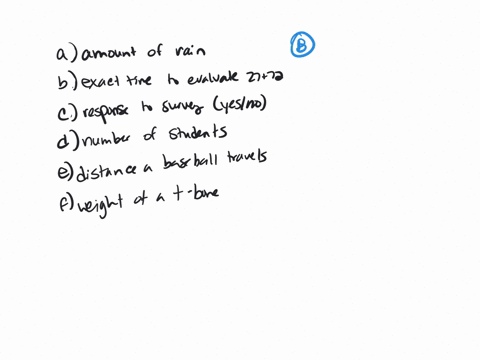 a) amount of rain
B
b) exact time to evaluate 27+72
c.) response to survey (yes/no)
d) number of students
e) distance a baseball travels
f) weight of a t-bone